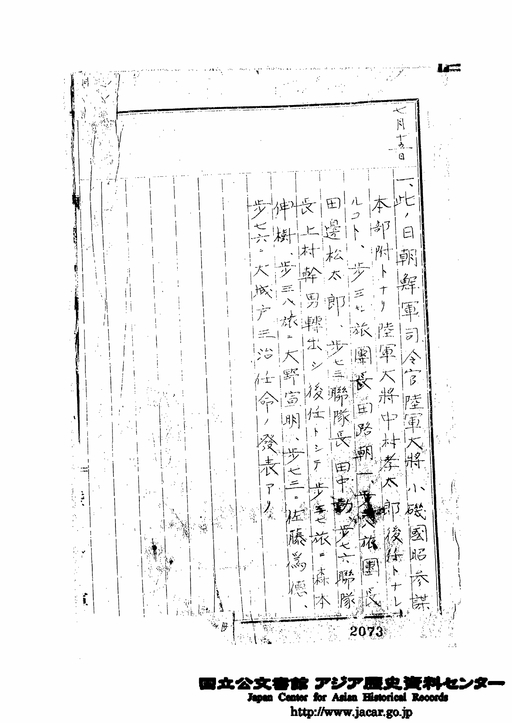 七月十五日
一、此ノ日朝鮮軍司令官陸軍大將小磯國昭參謀
本部附トナリ陸軍大將中村孝太郎後任トナレ
ルコト、歩三七旅團長田路朝一、歩 旅團長
田邊松太郎、歩七三聯隊長田中勤、歩七六聯隊
長上村幹男轉出シ後任トシテ歩三七旅ニ森本
伸樹歩三八旅ニ大野宣明、歩七三ニ佐藤爲德、
歩七六ニ大城戸三治任命ノ發表アリ
2073
国立公文書館 アジア歴史資料センター
Japan Center for Asian Historical Records
http://www.jacar.go.jp